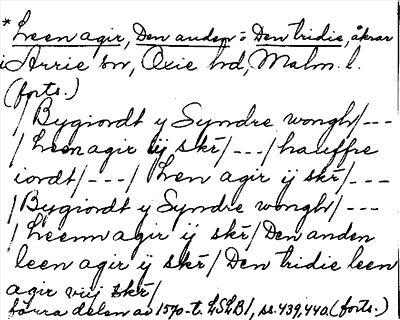 * Leen agir, Den anden = Den tridie, åkrar
i Arrie sn, Oxie hd, Malm. l.
(forts.)
/ Bygiordt y Syndre wongh/---
/ Leen agir ij skr/---/ hauffre
iordt/---/ Leen agir ij skr/---
/ Bygiordt y Syndre wongh/---
/ Leenn agir ij skr/ Den anden
leen agir ij skr/ Den tridie leen
agir viij skr/
förra delen av 1570-t. LSLB1, ss. 439, 440 (forts.)